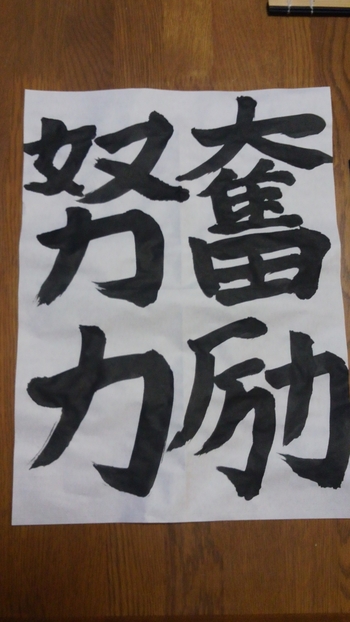 奮励
努力